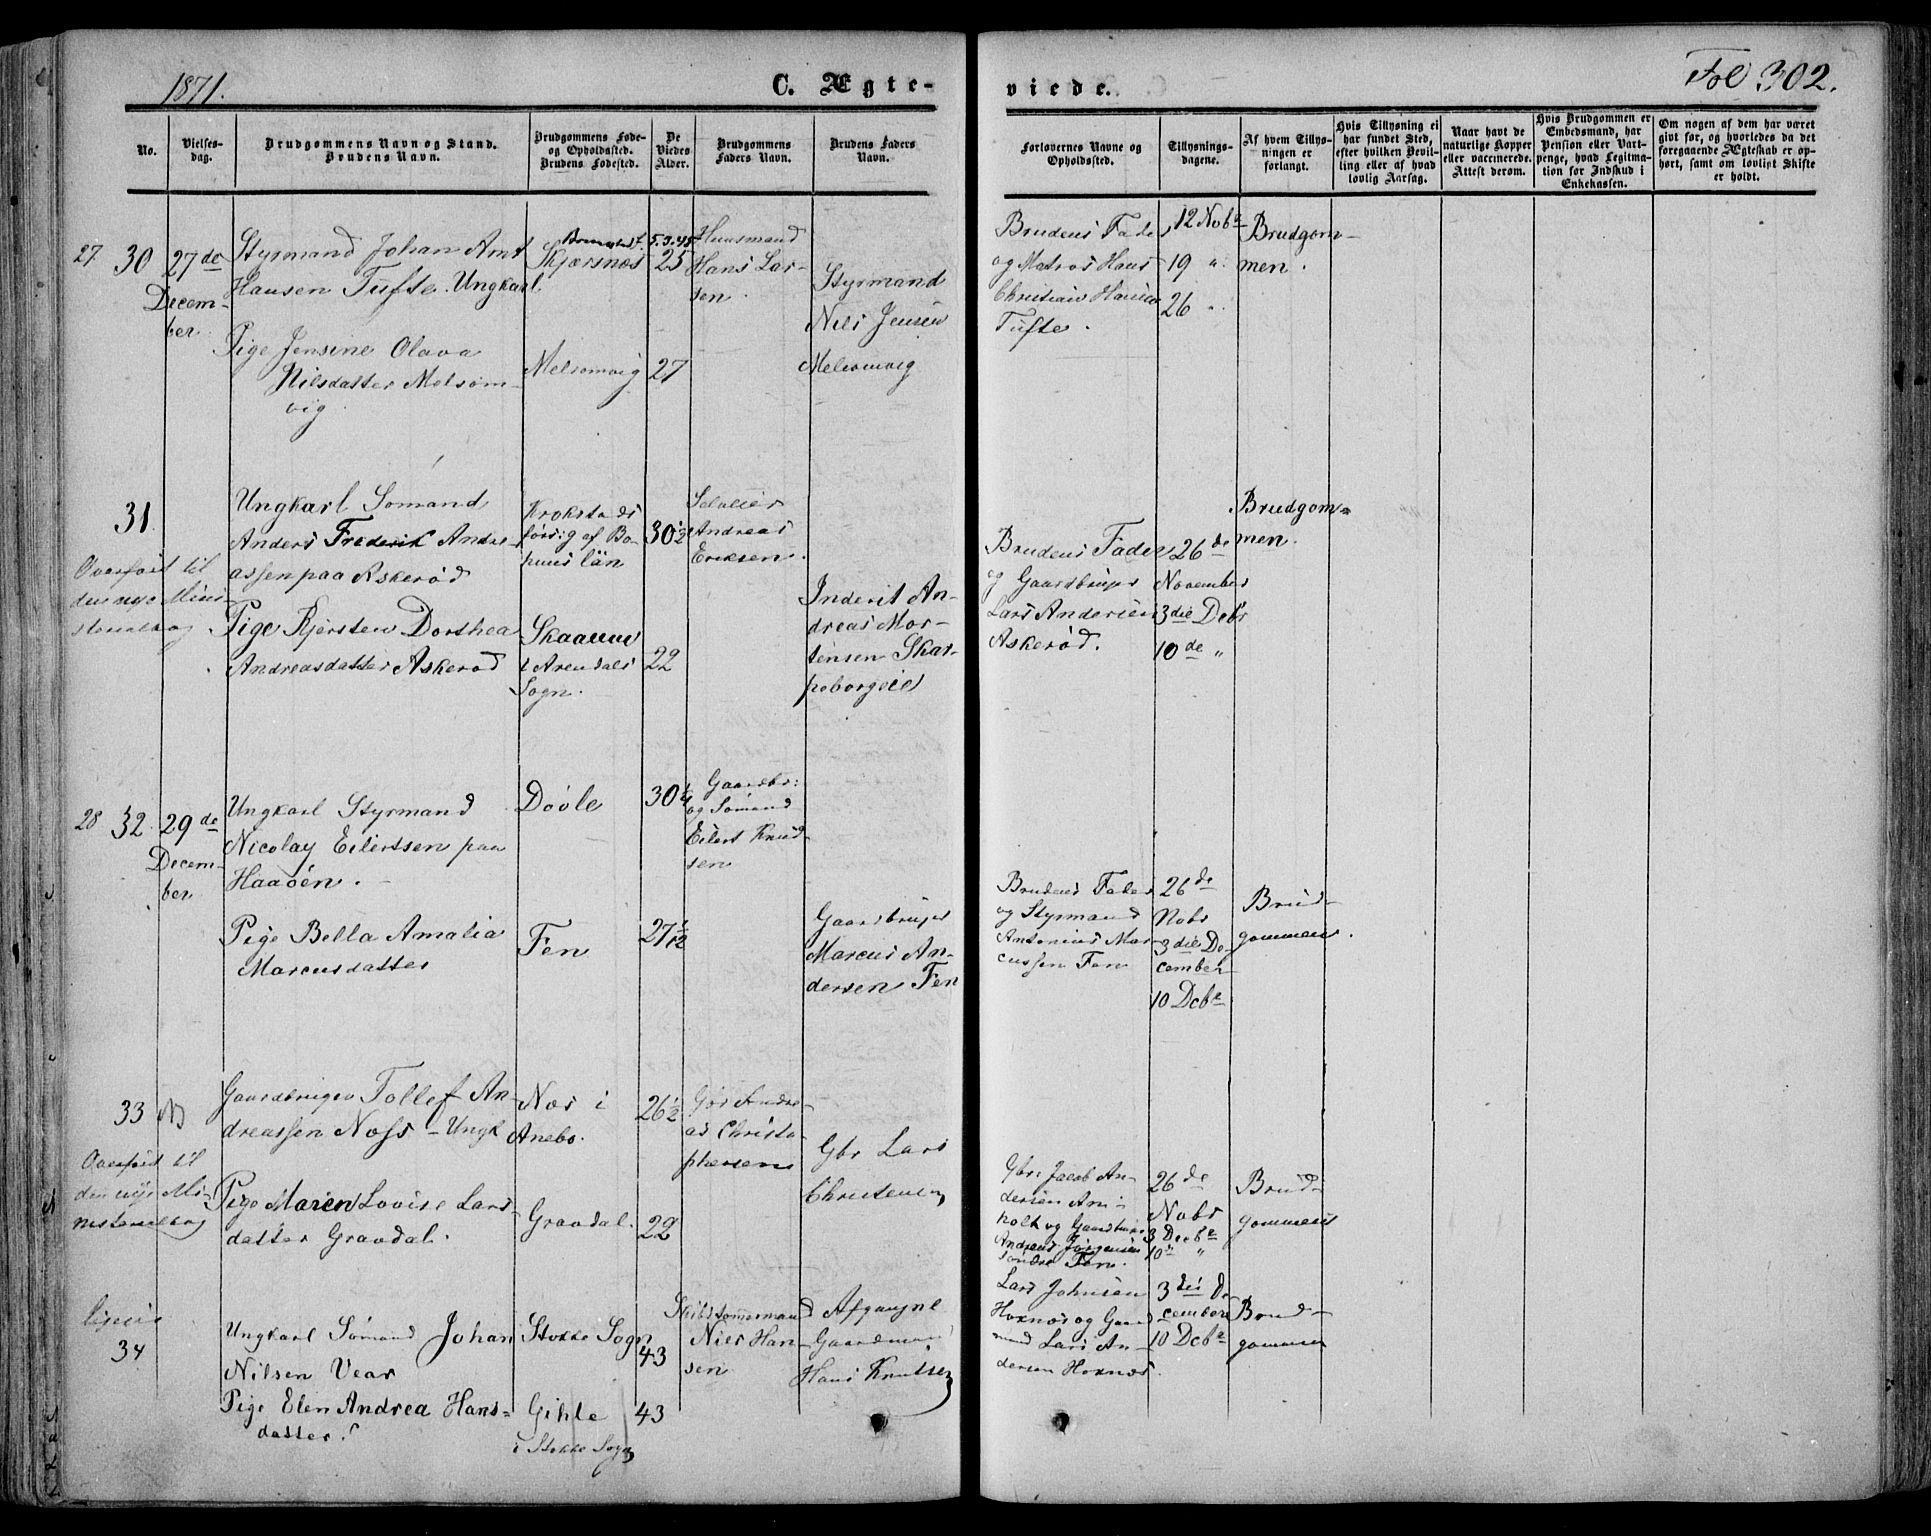 1871.
C. Ægte-
viede.
Fol 302.
No.
Vielses-
dag.
Brudgommens Navn og Stand.
Brudens Navn.
Brudgommens Føde-
og Opholdssted.
Brudens Fødested.
De
Viedes
Alder.
Brudgommens
Faders Navn.
Brudens Faders
Navn.
Forlovernes Navne og
Opholdssted.
Tillysnings-
dagene.
Af hvem Tillys-
ningen er
forlangt.
Hvis Tillysning ei
har fundet Sted,
efter hvilken Bevil-
ling eller af hvad
lovlig Aarsag.
Naar havt de
naturlige Kopper
eller vaccinerede.
Attest derom.
Hvis Brudgommen er
Embedsmand, har
Pension eller Vart-
penge, hvad Legitima-
tion for Indskud i
Enkekassen.
Om nogen af dem har været
givt før, og hvorledes da det
foregaaende Ægteskab er op-
hørt, samt om lovligt Skifte
er holdt.
27 30 27de
Decem-
ber
Styrmand Johan Arnt
Hansen Tufte. Ungkarl
Pige Jensine Olava
Nilsdatter Melsom-
vig
Skjærsnæs
Melsomvig
5.3.45
25
27
Huusmand
Hans Lar-
sen.
Styrmand
Nils Jensen
Melsomvig
Brudens Fader
og Matros Hans
Christian Hansen
Tufte.
12 Nobr
19 "
26 "
Brudgom-
men.
31.
Overført til
den nye Mini-
sterialbog
Ungkarl Sømand
Anders Frederik Andre-
assen paa Askerød
Pige Kjersten Dorthea
Andreasdatter Askerød
Krokstads
førsig af Bo-
huus län
Skaanne
i Arendals
Sogn.
30½
22
Andreas
Eriksen.
Inderst An-
dreas Mor-
tensen Skar-
poborgeie
Brudens Fader
og Gaardbruger
Lars Andersen
Askerød.
26de
November
3die Debr
10de "
Brudgom-
men.
28 32. 29de
Decem-
ber
Ungkarl Styrmand
Nicolay Eilertsen paa
Haaøen.
Pige Bella Amalia
Marcusdatter
Døøle
Fen
30¼
27 1/12
Gaardbr:
og Sømand
Eilert Knud-
sen
Gaardbruger
Marcus An-
dersen Fen
Brudens Fader
og Styrmand
Antonius Mar-
cussen Fen
26de
Nobr
3die De-
cember
10 Decbr
Brud-
gommen.
33
Overført til
den nye Mi-
nisterialbog
Gaardbruger Tollef An-
dreassen Næss - Ungk
Pige Maren Lovise Lars-
datter Gravdal.
Næs i
Anebo.
Gravdal.
26½
22
Gbr Andre-
as Christo-
phersen
Gbr Lars
Christensen
Gbr: Jacob An-
dersen Am-
holt og Gaardbruger
Andreas Jørgensen
søndre Fen.
26de
Nobr
3 Decbr
10de "
Brud-
gommen
ligeså
34
Ungkarl Sømand Johan
Nilsen Vear
Pige Elen Andrea Hans-
datter.
Stokke Sogn
Gihle
i Stokke Sogn
43
43
Skibstømmermand
Niels Han-
sen
Afgangne
Gaardmand
Hans Knutsen
Lars Johnsen
Hoxnæs og Gaard-
mand Lars An-
dersen Hoxnæs.
3die De-
cember
10 Decbr
Brud-
gommen